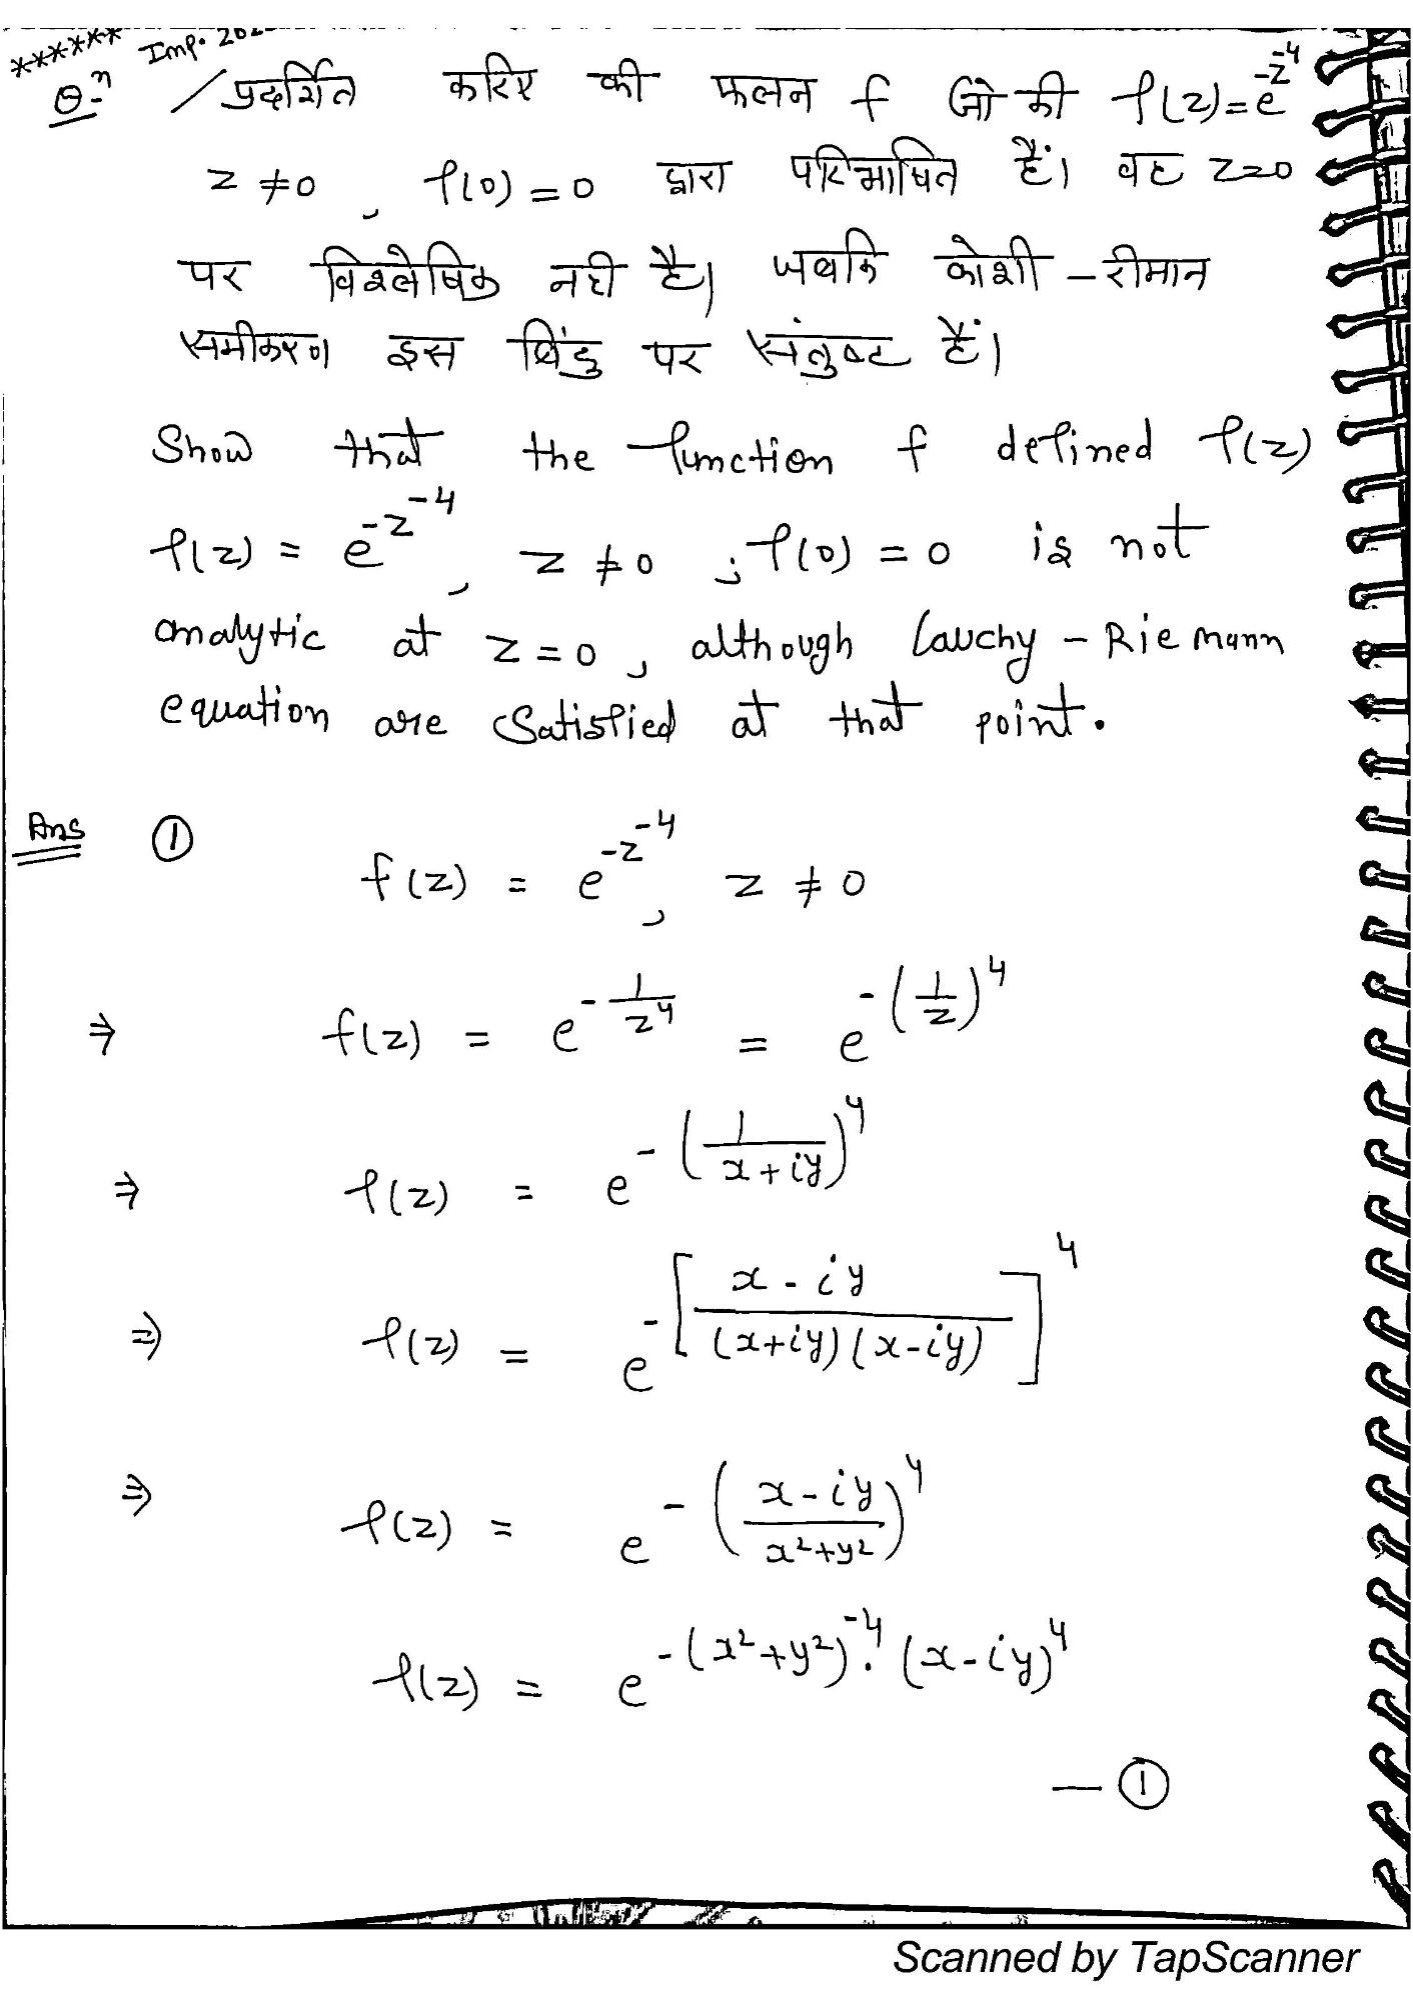 ****** Imp.
Qⁿ / प्रदर्शित करिए की फलन f जो की f(z)=e^{-z^{-4}}
z ≠ 0 , f(0) = 0 द्वारा परिभाषित हैं। वह z=0
पर विश्लेषिक नही है। जबकि कोशी - रीमान
समीकरण इस बिंदु पर संतुष्ट हैं।
Show that the function f defined f(z)
f(z) = e^{-z^{-4}}, z ≠ 0 ; f(0) = 0 is not
analytic at z = 0, although Cauchy - Riemann
equation are satisfied at that point.
Ans ① f(z) = e^{-z^{-4}}, z ≠ 0
⇒ f(z) = e^{-\frac{1}{z^4}} = e^{-(\frac{1}{z})^4}
⇒ f(z) = e^{-(\frac{1}{x+iy})^4}
⇒ f(z) = e^{-[\frac{x-iy}{(x+iy)(x-iy)}]^4}
⇒ f(z) = e^{-(\frac{x-iy}{x^2+y^2})^4}
f(z) = e^{-(x^2+y^2)^{-4}.(x-iy)^4}
— ①
Scanned by TapScanner